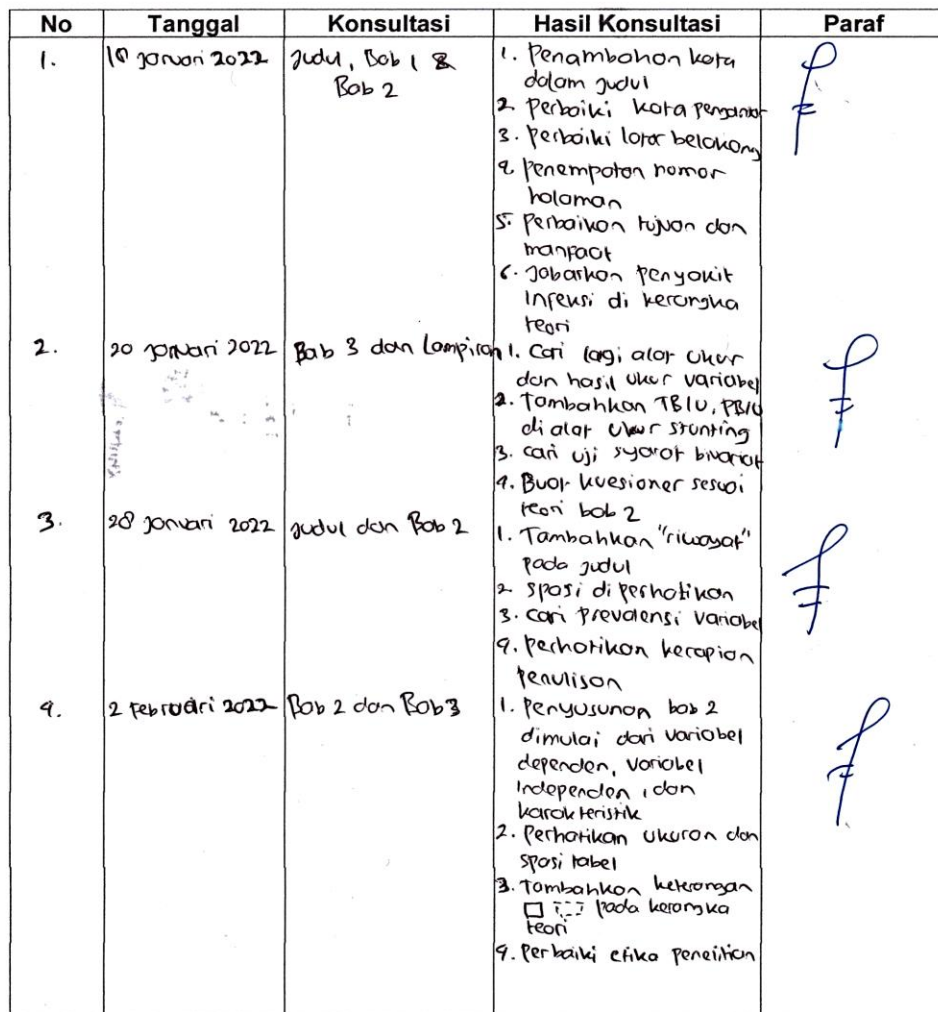 No Tanggal Konsultasi Hasil Konsultasi Paraf
1. Januari 2022 Judul, Bab 1 & Bab 2
1. Penambahan kata
dalam judul
2. Perbaiki kata pengantar
3. Perbaiki latar belakang
4. Penempatan nomor
halaman
5. Perbaikan tujuan dan
manfaat
6. Jabarkan penyakit
infeksi di kerangka
teori
2. 20 Januari 2022 Bab 3 dan Lampiran
1. Cari lagi alat ukur
dan hasil ukur variabel
2. Tambahkan TB/U, PB/U
di alat ukur stunting
3. Cari uji syarat bivariat
4. Buat kuesioner sesuai
teori bab 2
3. 28 Januari 2022 Judul dan Bab 2
1. Tambahkan "riwayat"
pada judul
2. Spasi diperhatikan
3. Cari prevalensi variabel
4. Perhatikan kerapian
penulisan
4. 2 Februari 2022 Bab 2 dan Bab 3
1. Penyusunan bab 2
dimulai dari variabel
dependen, variabel
independen, dan
karakteristik
2. Perhatikan ukuran dan
spasi tabel
3. Tambahkan keterangan
pada kerangka
teori
4. Perbaiki etika penelitian